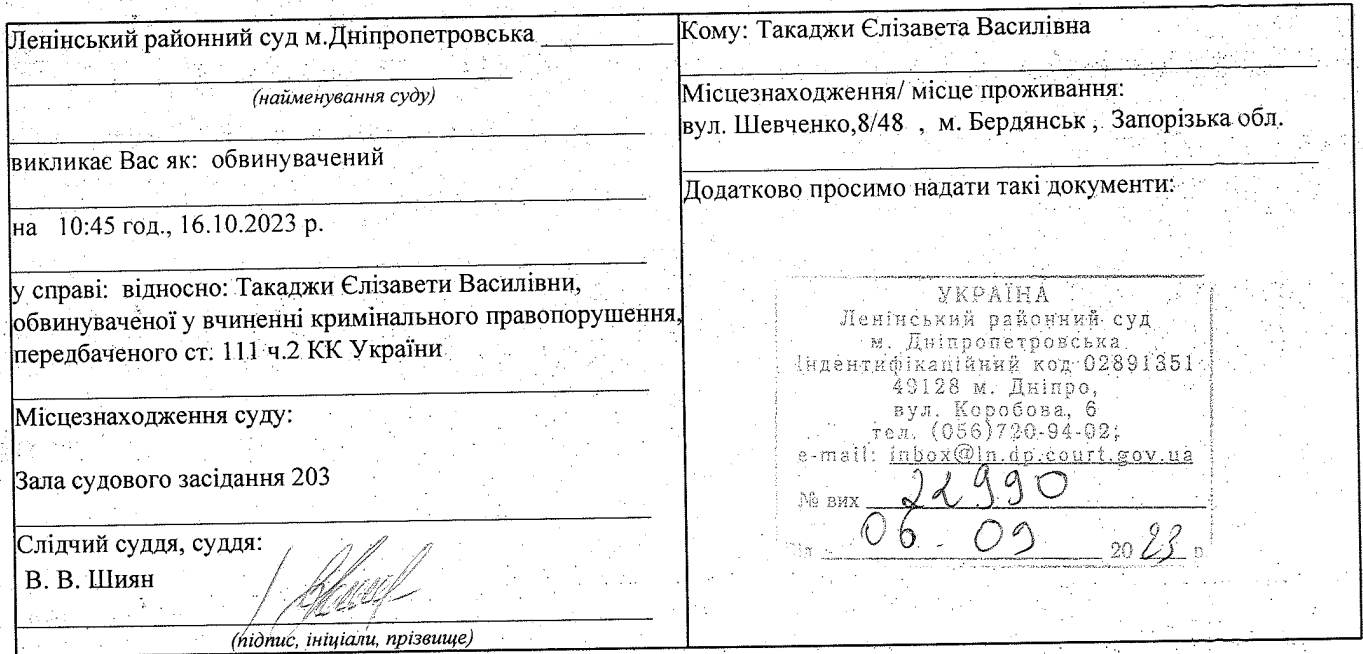 Ленінський районний суд м.Дніпропетровська
(найменування суду)
викликає Вас як: обвинувачений
на 10:45 год., 16.10.2023 р.
у справі: відносно: Такаджи Єлізавети Василівни,
обвинуваченої у вчиненні кримінального правопорушення,
передбаченого ст. 111 ч.2 КК України
Місцезнаходження суду:
Зала судового засідання 203
Слідчий суддя, суддя:
В. В. Шиян
(підпис, ініціали, прізвище)
Кому: Такаджи Єлізавета Василівна
Місцезнаходження/ місце проживання:
вул. Шевченко,8/48 , м. Бердянськ , Запорізька обл.
Додатково просимо надати такі документи:
УКРАЇНА
Ленінський районний суд
м. Дніпропетровська
Індентифікаційний код 02891351
49128 м. Дніпро,
вул. Коробова, 6
тел. (056)720-94-02;
e-mail: inbox@ln.dp.court.gov.ua
№ вих 22990
06 - 09 2023 р